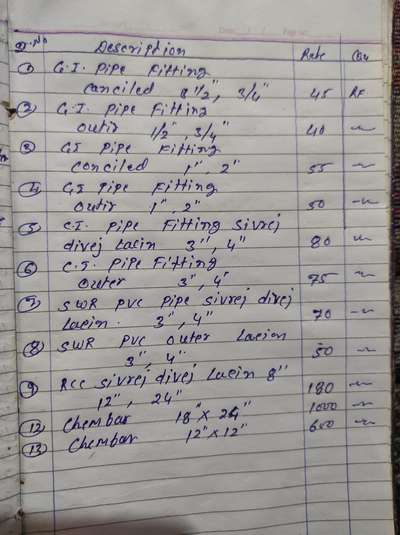 D.No Description Rate
① G.I. Pipe Fitting
canciled 1/2", 3/4" 45 RF
② G.I. Pipe Fitting
outir 1/2", 3/4" 40 ~
③ GI Pipe Fitting
conciled 1", 2" 55 ~
④ GI Pipe Fitting
outir 1", 2" 50 ~
⑤ C.I. Pipe Fitting Sivrej
divej Lacin 3", 4" 80 ~
⑥ C.I. Pipe Fitting
outer 3", 4" 75 ~
⑦ SWR PVC Pipe Sivrej divej
Lacin. 3", 4" 70 ~
⑧ SWR PVC outer Lacion
3", 4" 50 ~
⑨ RCC Sivrej divej Lacin 8"
12", 24" 180 ~
⑫ Chembar 18" X 24" 1000 ~
⑬ Chembar 12" X 12" 600 ~